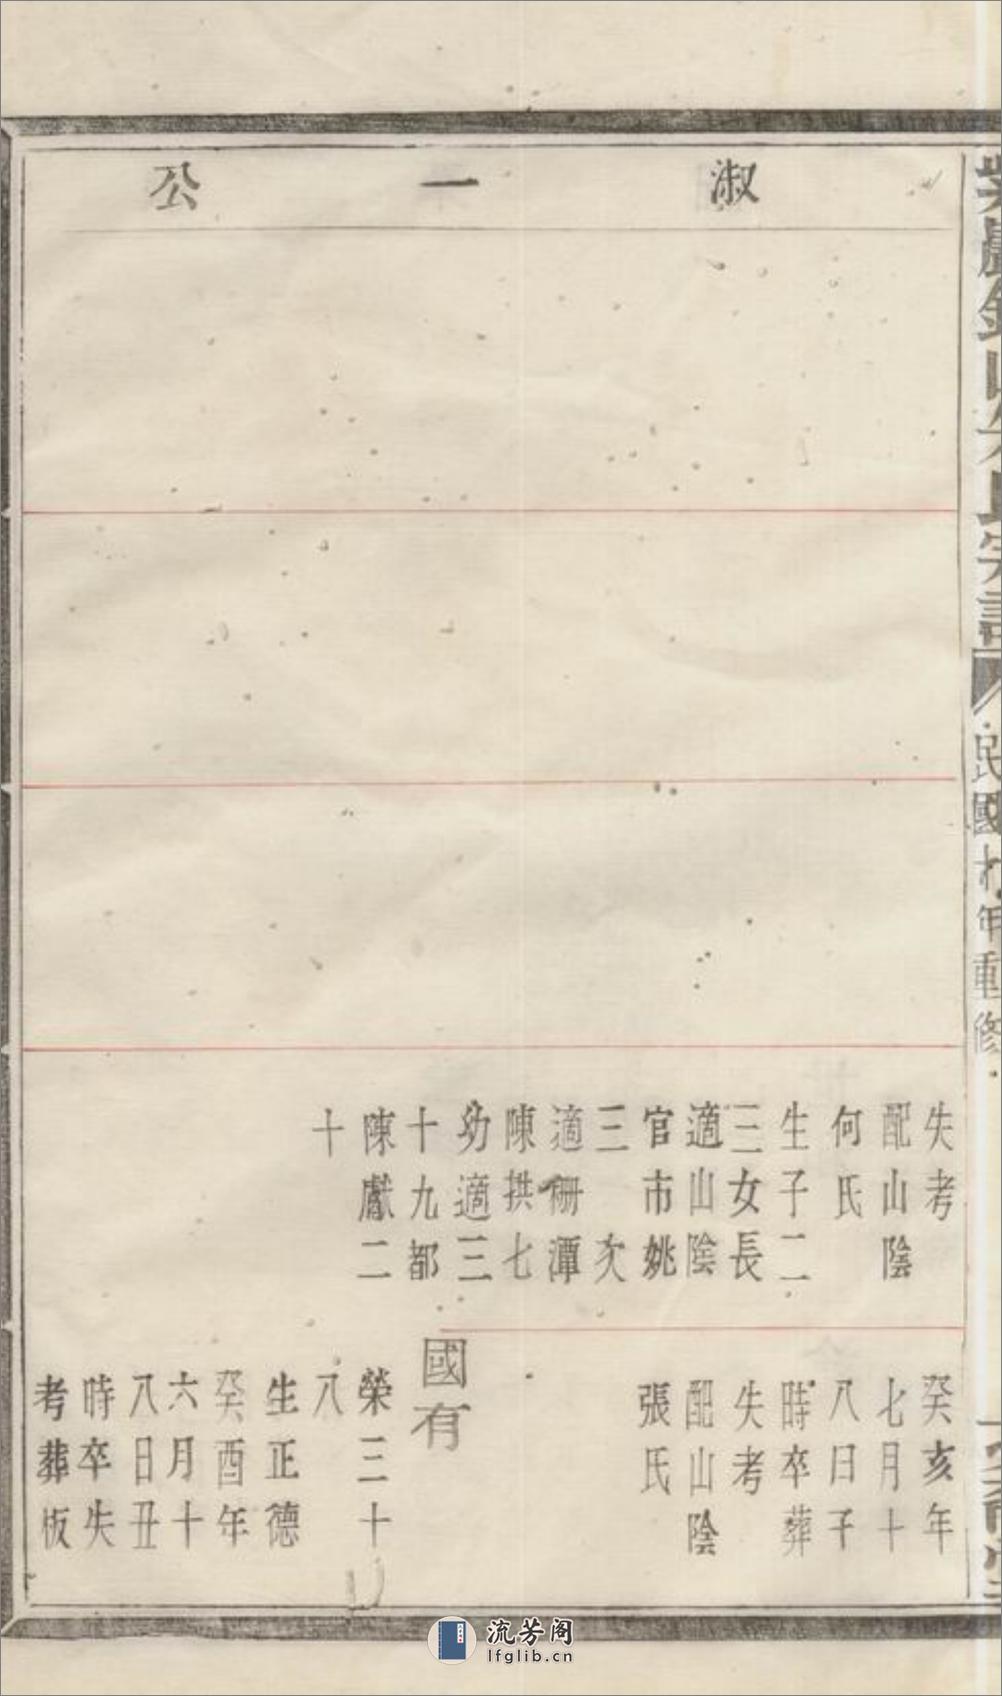 淑一公
失考
配山陰
何氏
生子二
三女長
適山陰
官市姚
三次
適柵潭
陳拱七
幼適三
十九都
陳獻二
十
癸亥年
七月十
八日子
時卒葬
失考
配山陰
張氏
國有
榮三十
八
生正德
癸酉年
六月十
八日丑
時卒失
考葬板
民國九年重修
流芳阁
lfglib.cn